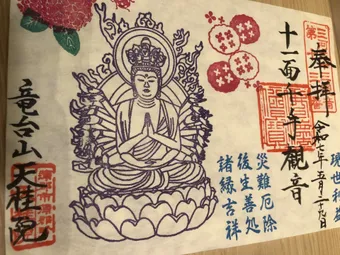 奉拝
令和七年五月二十九日
十一面千手観音
現世利益
災難厄除
後生善処
諸縁吉祥
竜台山 天桂院